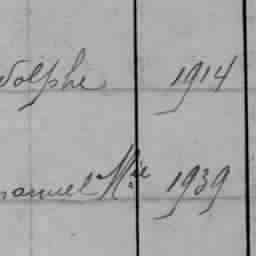 dolphe 1914
anuel Mie 1939